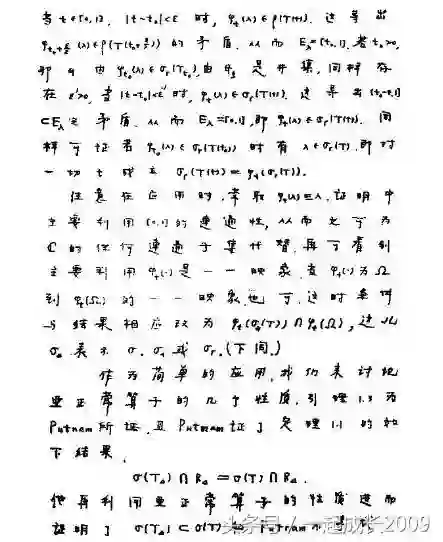 当 t∈[0,1], |t-t₀|<ε 时, φₜ(λ)∈ρ(T(t)). 这导出
φ_{t₀+ε/2}(λ)∈ρ(T(t₀+ε/2)) 的矛盾. 从而 E_λ=[0,1]. 若 t₀>0,
即 由 φ_{t₀}(λ)∈σᵣ(T_{t₀}), 由 是开集, 同样存
在 ε'>0, 当 |t-t₀|<ε' 时, φₜ(λ)∈σᵣ(T(t)). 这导出 (t₀-
⊂E_λ 之矛盾. 从而 E_λ=[0,1], 即 φₜ(λ)∈σᵣ(T(t)). 同
样可证若 φₜ(λ)∈σᵣ(T(t)) 时有 λ∈σᵣ(T), 即对
一切 t 成立 σᵣ(T(t))=φₜ(σᵣ(T)).
注意在应用时, 常取 φₜ(λ)≡λ. 证明中
主要利用 [0,1] 的连通性, 从而它可为
C 的任何连通子集代替, 再可看到
主要利用 φₜ(·) 是一一映象, 当 φₜ(·) 为 Ω
到 φₜ(Ω) 的一一映象也可, 这时条件
与结果相应改为 φₜ(σₐ(T))∩φₜ(Ω), 这儿
σₐ 表示 σ, σₐ 或 σᵣ. (下同.)
作为简单的应用, 我们来讨论
亚正常算子的几个性质, 引理 1.3 为
Putnam 所证, 且 Putnam 证了定理 1.1 的如
下结果.
σ(Tₐ)∩Rₐ=σ(T)∩Rₐ.
他再利用亚正常算子的性质进而
证明了 σ(Tₐ)⊂σ(T) Putnam
头条号/一起成长2009